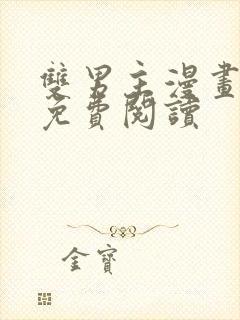 雙男主漫畫
免費閱讀
金寶